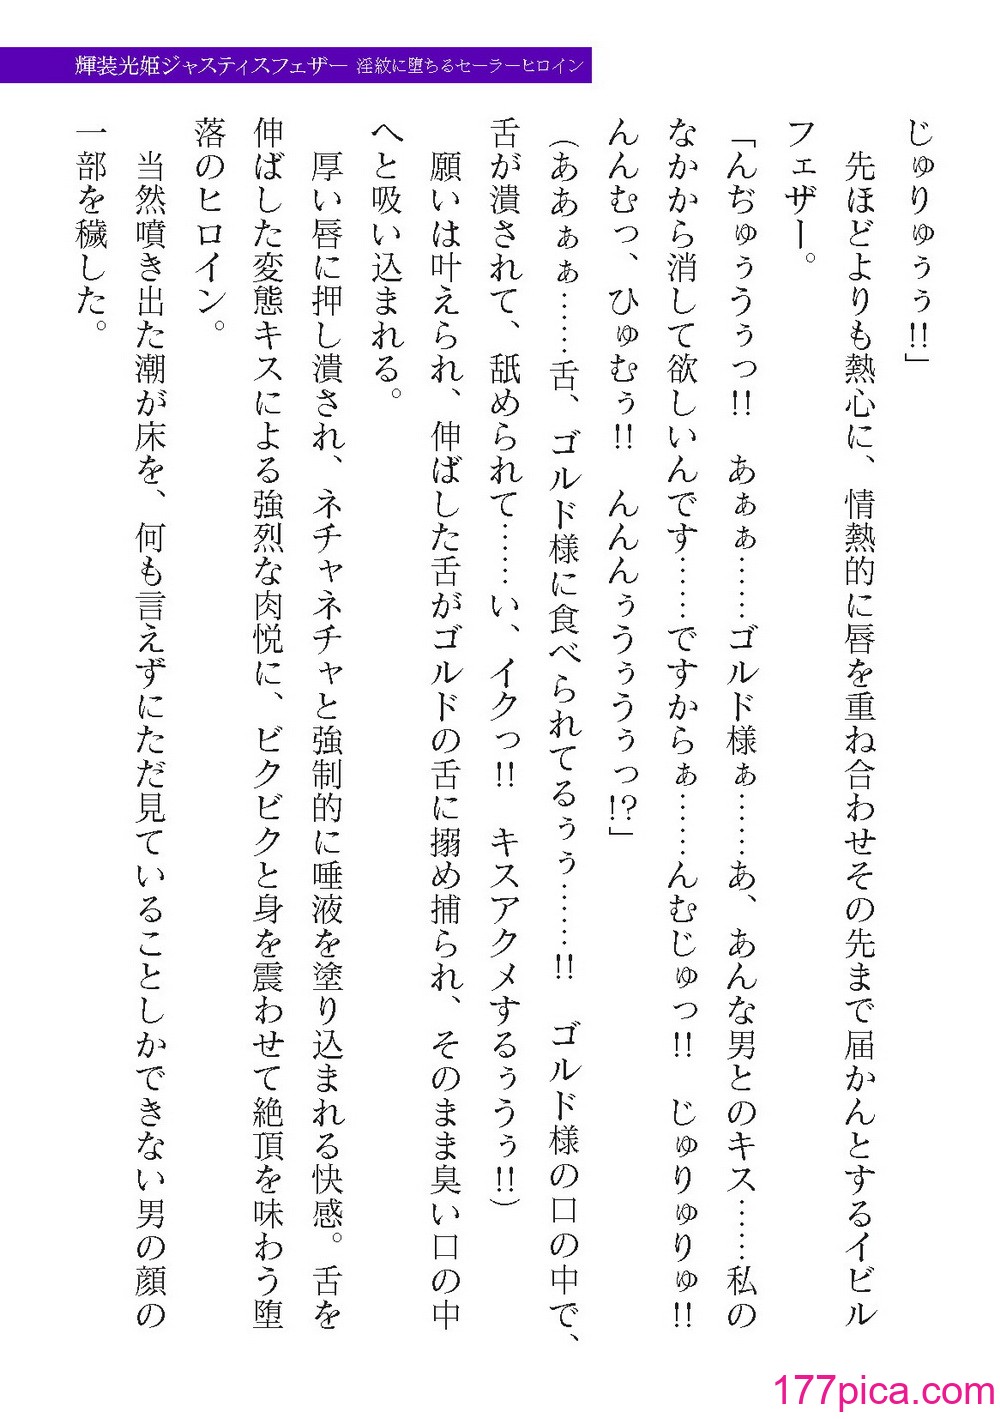 輝装光姫ジャスティスフェザー 淫紋に堕ちるセーラーヒロイン
じゅりゅうぅ!!」
　先ほどよりも熱心に、情熱的に唇を重ね合わせその先まで届かんとするイビル
フェザー。
「んぢゅぅうぅっ!!　あぁぁ……ゴルド様ぁ……あ、あんな男とのキス……私の
なかから消して欲しいんです……ですからぁ……んむじゅっ!!　じゅりゅりゅ!!
んんむっ、ひゅむぅ!!　んんんぅうぅうぅっ!?」
（ああぁぁ……舌、ゴルド様に食べられてるぅぅ……!!　ゴルド様の口の中で、
舌が潰されて、舐められて……い、イクっ!!　キスアクメするぅうぅ!!）
　願いは叶えられ、伸ばした舌がゴルドの舌に搦め捕られ、そのまま臭い口の中
へと吸い込まれる。
　厚い唇に押し潰され、ネチャネチャと強制的に唾液を塗り込まれる快感。舌を
伸ばした変態キスによる強烈な肉悦に、ビクビクと身を震わせて絶頂を味わう堕
落のヒロイン。
　当然噴き出た潮が床を、何も言えずにただ見ていることしかできない男の顔の
一部を穢した。
177pica.com